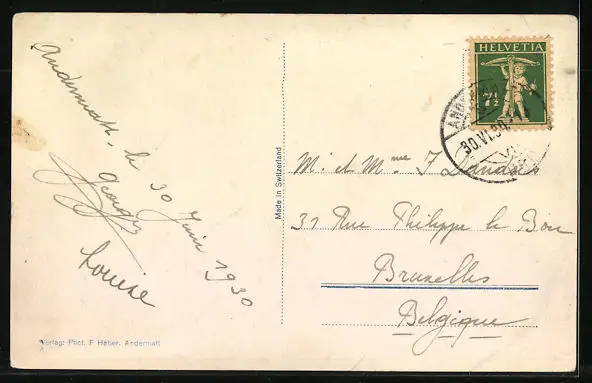 Andermatt - le 30 Juin 1930
Georges
Louise
Verlag: Phot. F Haber, Andermatt
Made in Switzerland
HELVETIA
7½
30.VI.30
M. et Mme J.
31 Rue Philippe le Bon
Bruxelles
Belgique